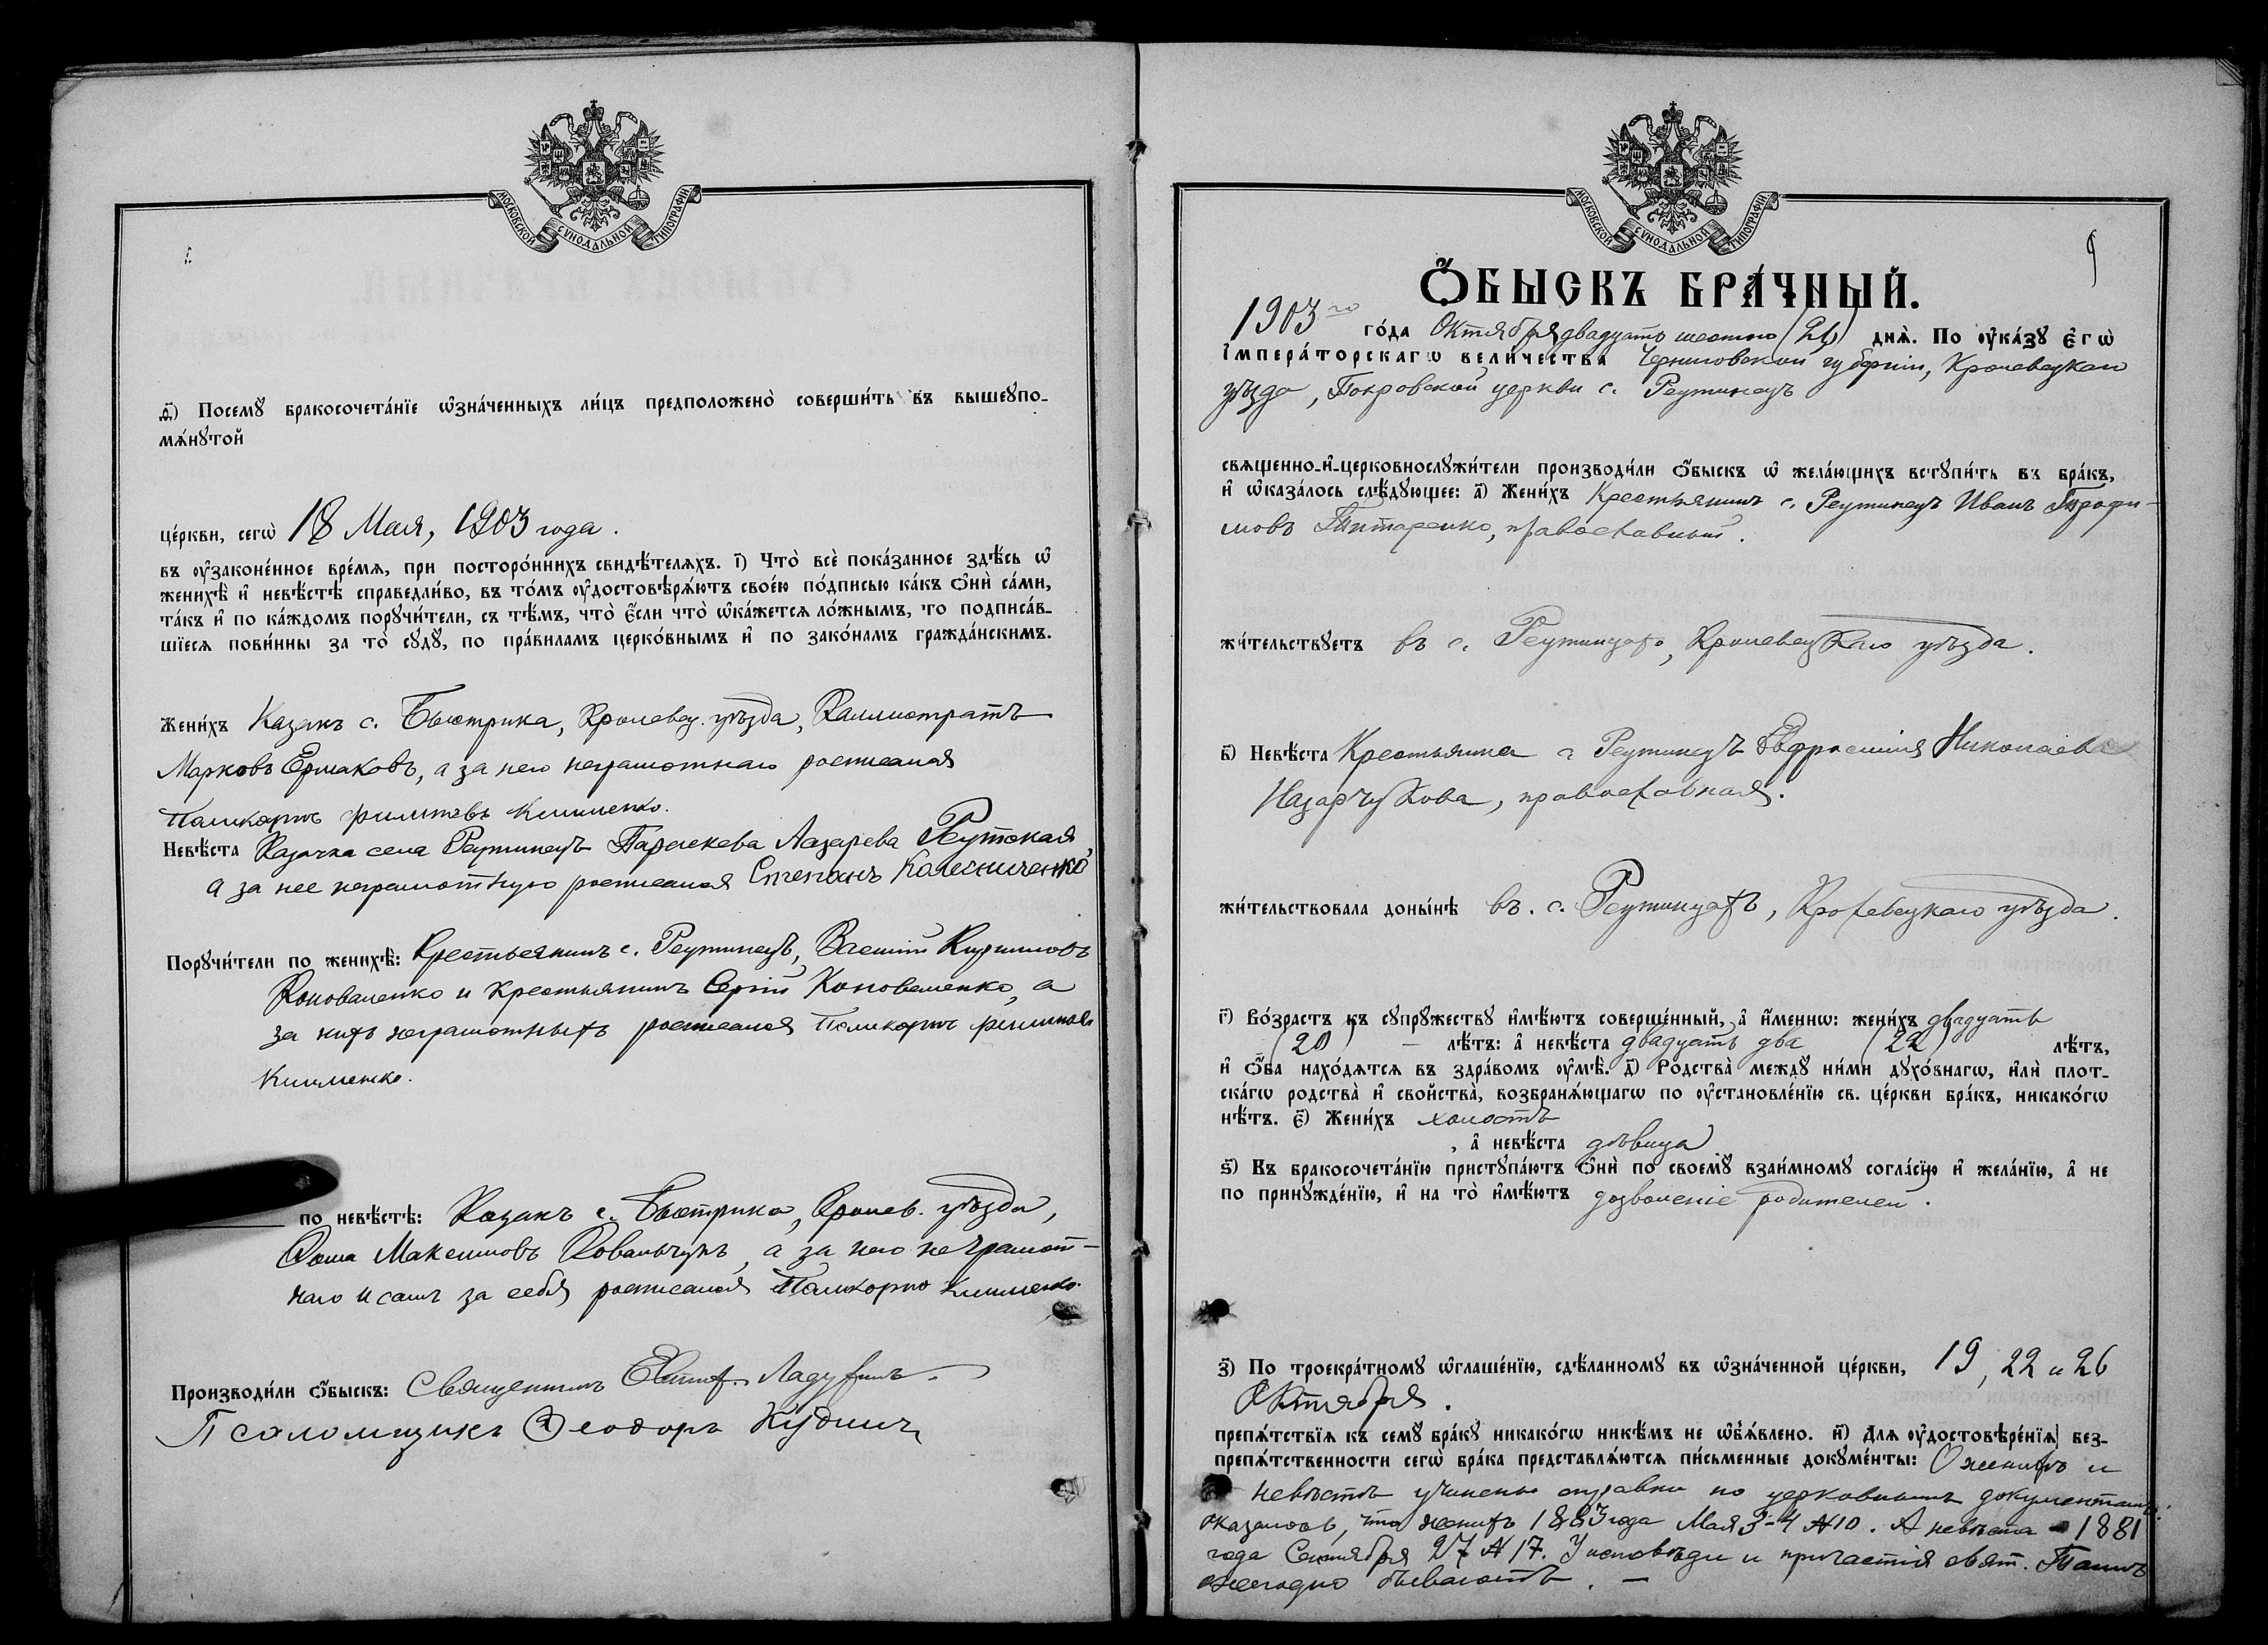 МОСКОВСКОЙ СѴНОДАЛЬНОЙ ТИПОГРАФІИ
д҃і) Посемꙋ бракосочета́нїе ѡ҆зна́ченныхъ ли́цъ предположено̀ соверши́ть въ вышеꙋпо-
мѧ́нꙋтой
це́ркви, сегѡ̀ 18 Мая, 1903 года.
въ ѹ҆законе́нное вре́мѧ, при посторо́ннихъ свидѣ́телѧхъ. і҃) Что̀ всѐ пока́занное здѣ́сь ѡ҆
женихѣ̀ и҆ невѣ́стѣ справедли́во, въ то́мъ ѹ҆достовѣрѧ́ютъ свое́ю по́дписью ка́къ ѻ҆нѝ са́ми,
та́къ и҆ по ка́ждомъ порꙋчи́тели, съ тѣ́мъ, что̀ є҆́сли что̀ ѡ҆ка́жетсѧ ло́жнымъ, то подписа́в-
шїесѧ пови́нны за то̀ сꙋдꙋ̀, по пра́виламъ церко́внымъ и҆ по зако́намъ гражда́нскимъ.
Жени́хъ Казакъ с. Быстрика, Кролевец. уѣзда, Каллистратъ
Марковъ Ермаковъ, а за него неграмотнаго росписался
Поликарпъ Филиповъ Клименко.
Невѣ́ста Казачка села Реутинецъ Параскева Лазарева Реутская,
а за нее неграмотную росписался Степанъ Колесниченко
Порꙋчи́тели по женихѣ̀: Крестьянинъ с. Реутинецъ, Василій Кириловъ
Коноваленко и крестьянинъ Сергій Коноваленко, а
за нихъ неграмотныхъ росписался Поликарпъ Филиповъ
Клименко.
по невѣ́стѣ: Казакъ с. Быстрика, Кролев. уѣзда,
Ѳома Максимовъ Ковальчукъ, а за него неграмот-
наго и самъ за себя росписался Поликарпъ Клименко.
Производи́ли ѻ҆́быскъ: Священникъ
Псаломщикъ Ѳеодоръ
МОСКОВСКОЙ СѴНОДАЛЬНОЙ ТИПОГРАФІИ
9
Ѻ҆́БЫСКЪ БРА́ЧНЫЙ.
1903го го́да Октября двадцать шестого (26) днѧ̀. По ѹ҆ка́зꙋ є҆гѡ̀
і҆мпера́торскагѡ вели́чества Черниговской губерніи, Кролевецкаго
уѣзда, Покровской церкви с. Реутинецъ
свѧщенно-и҆-церковнослꙋжи́тели производи́ли ѻ҆́быскъ ѡ҆ жела́ющихъ встꙋпи́ть въ бра́къ,
и҆ ѡ҆каза́лось слѣ́дꙋющее: а҃) Жени́хъ Крестьянинъ с. Реутинецъ Иванъ Трофи-
мовъ Титаренко, православный.
жи́тельствꙋетъ въ с. Реутинцахъ, Кролевецкаго уѣзда.
в҃) Невѣ́ста Крестьянка с Реутинецъ Евфросинія Николаева
Назарчукова, православная.
жи́тельствовала доны́нѣ въ. с. Реутинцахъ, Кролевецкаго уѣзда.
г҃) Во́зрастъ къ сꙋпрꙋ́жествꙋ и҆мѣ́ютъ соверше́нный, а҆ и҆́меннѡ: жени́хъ двадцать
(20) — лѣ́тъ: а҆ невѣ́ста двадцать два (22) лѣ́тъ,
и҆ ѻ҆́ба нахо́дѧтсѧ въ здра́вомъ ѹ҆мѣ̀. д҃) Родства̀ междꙋ̀ ни́ми дꙋхо́внагѡ, и҆лѝ плот-
ска́гѡ родства̀ и҆ сво́йства, возбранѧ́ющагѡ по ѹ҆становле́нїю св. це́ркви бра́къ, никако́гѡ
нѣ́тъ. є҃) Жени́хъ холостъ
, а҆ невѣ́ста дѣвица
ѕ҃) Въ бракосочета́нїю пристꙋпа́ютъ ѻ҆нѝ по своемꙋ̀ взаи́мномꙋ согла́сїю и҆ жела́нїю, а҆ не
по принꙋжде́нїю, и҆ на то̀ и҆мѣ́ютъ дозволеніе родителей.
з҃) По троекра́тномꙋ ѡ҆глаше́нїю, сдѣ́ланномꙋ въ ѡ҆зна́ченной це́ркви, 19, 22 и 26
Октября.
препѧ́тствїѧ къ семꙋ̀ бра́кꙋ никако́гѡ никѣ́мъ не ѡ҆бъѧ́влено. и҃) Длѧ ѹ҆достовѣре́нїѧ без-
препѧ́тственности сегѡ̀ бра́ка представлѧ́ютсѧ пи́сьменные докꙋме́нты: О женихѣ и
невѣстѣ учинены справки по церковнымъ документамъ:
оказалось, что женихъ 1883 года Мая 3-4 № 10. А невѣста - 1881
года Сентября 27 № 17. У исповѣди и причастія свят. Таинъ
ежегодно бываютъ. —